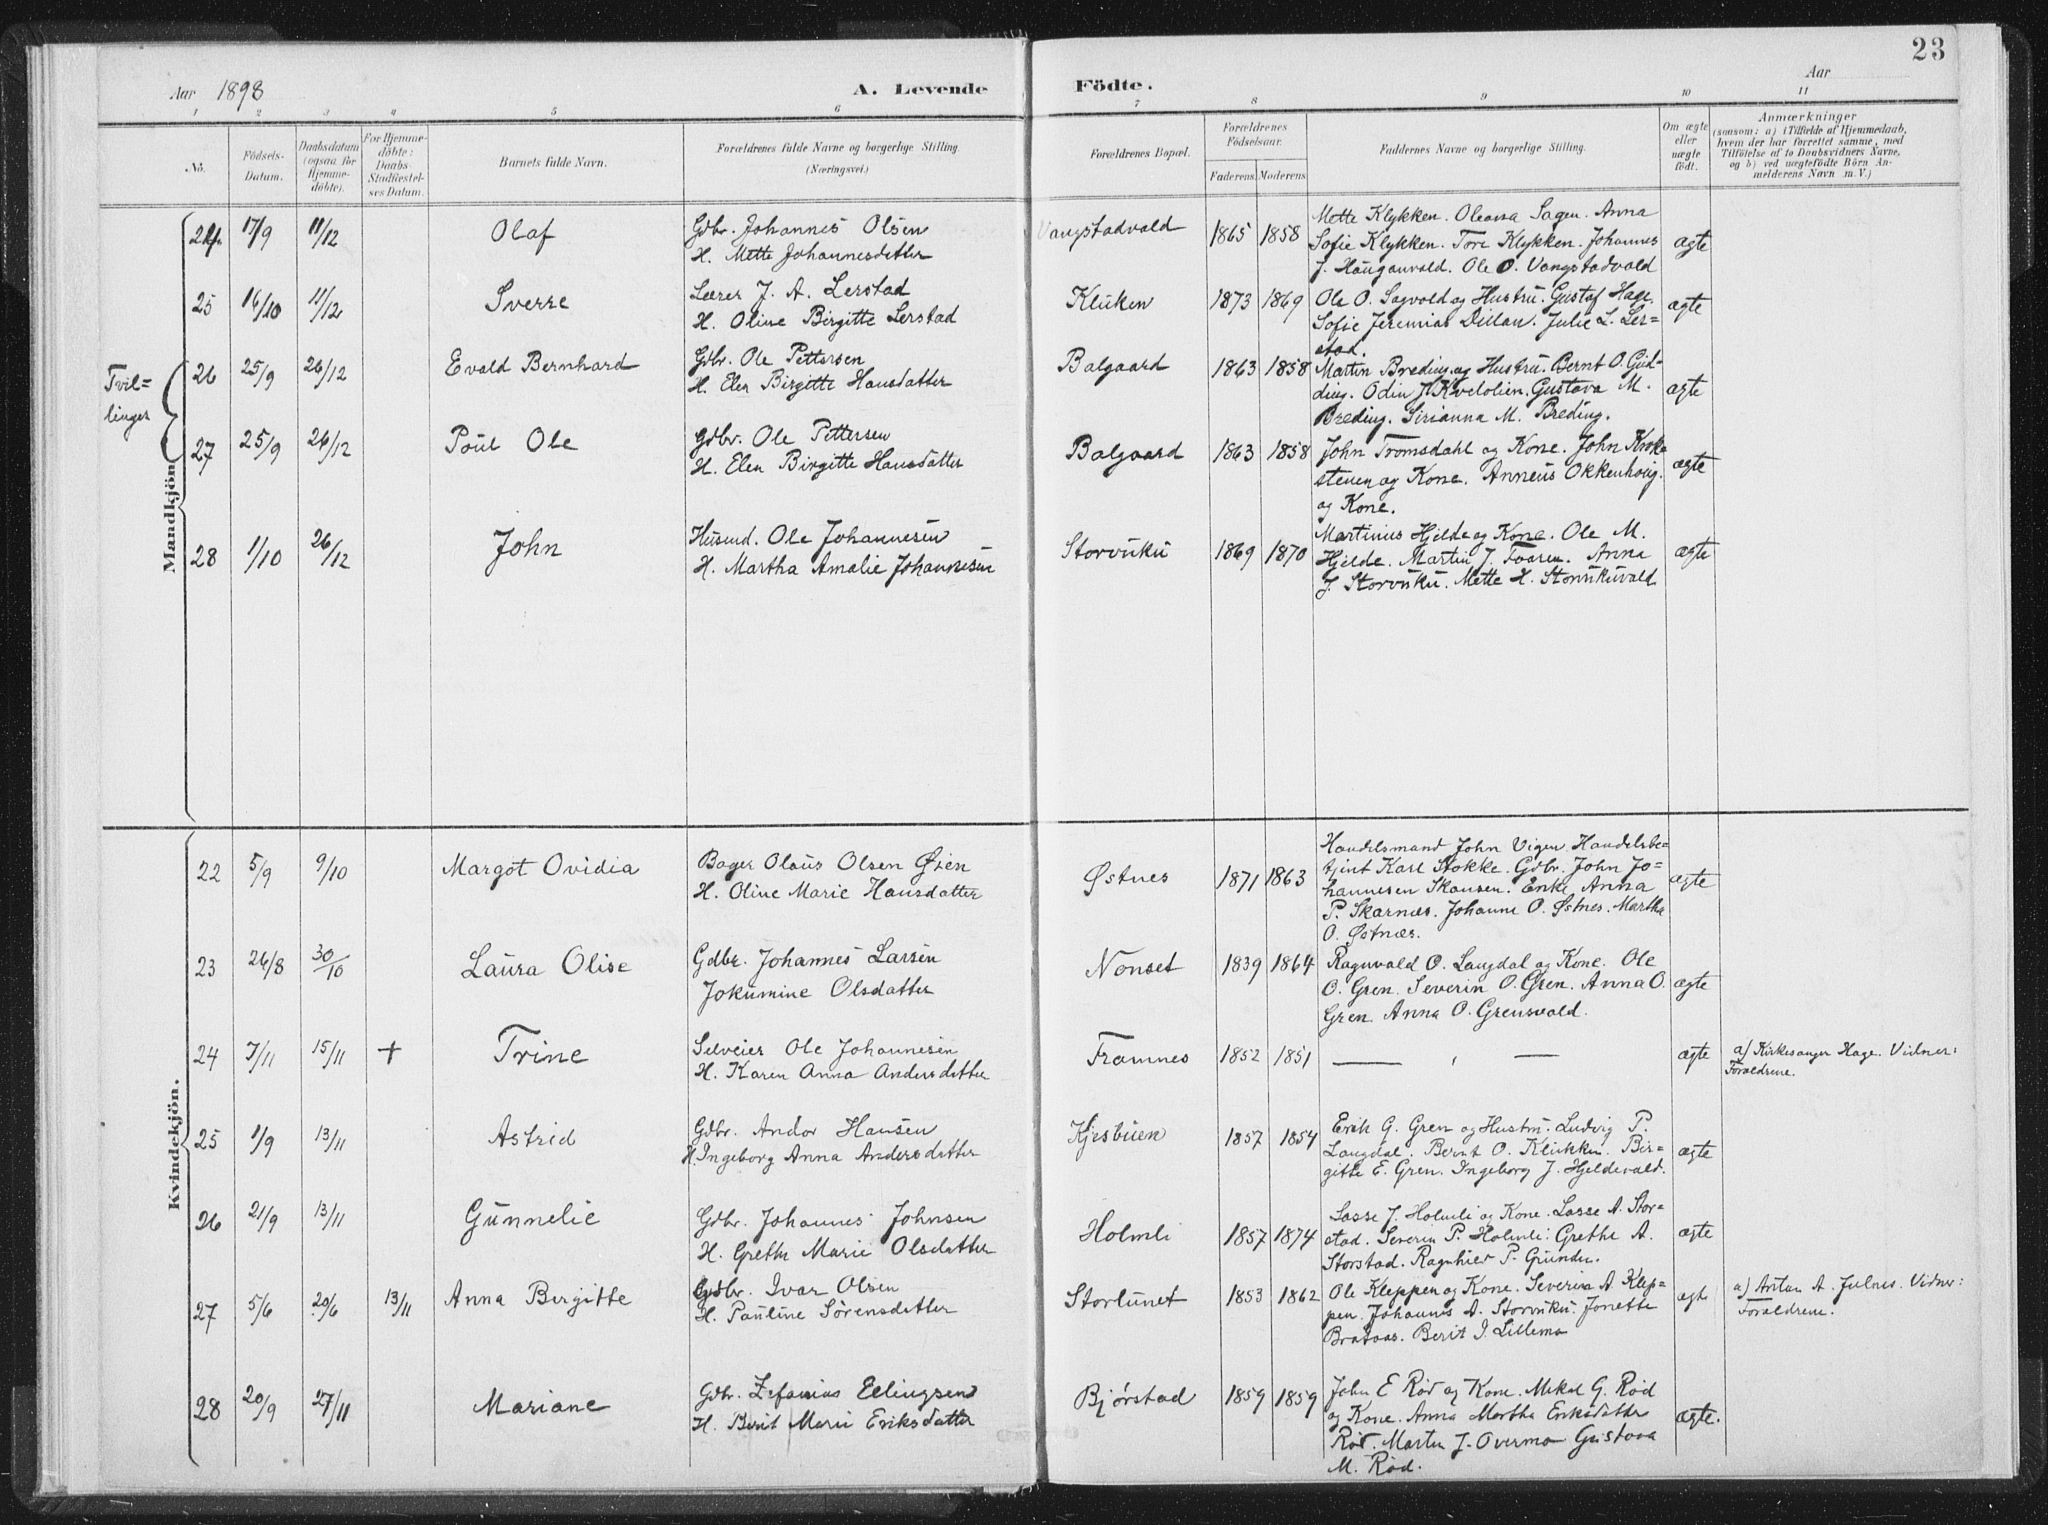 23
Aar 1898
A. Levende Födte.
Aar
1 2 3 4 5 6 7 8 9 10 11
No.
Födsels-Datum.
Daabsdatum (ogsaa for Hjemmedöbte).
For Hjemmedöbte: Daabs-Stadfæstelses Datum.
Barnets fulde Navn.
Forældrenes fulde Navne og borgerlige Stilling. (Næringsvei.)
Forældrenes Bopæl.
Forældrenes Födselsaar.
Faderens. Moderens.
Faddernes Navne og borgerlige Stilling.
Om ægte eller uægte födt.
Anmærkninger
(saasom: a) i Tilfælde af Hjemmedaab,
hvem der har forrettet samme, med
Tilföielse af to Daabsvidners Navne,
og b) ved uægtefödte Börn An-
melderens Navn m. V.)
Mandkjön.
24. 17/9 11/12 Olaf
Gdbr. Johannes Olsen
H. Mette Johannesdatter
Vangstadvald 1865 1858
Mette Klykken. Oleana Sagen. Anna
Sofie Klykken. Tore Klykken. Johannes
J. Hauganvald. Ole O. Vangstadvald
ægte
25 16/10 11/12 Sverre
Lærer J. A. Lerstad
H. Oline Birgitte Lerstad
Kluken 1873 1869
Ole O. Sagvold og Hustru. Gustaf Hage.
Sofie Jeremias Dillan. Julie L. Ler=
stad.
ægte
Tvil=
linger
26 25/9 26/12 Evald Bernhard
Gdbr. Ole Pettersen
H. Elen Birgitte Hansdatter
Balgaard 1863 1858
Martin Breding og Hustru. Bernt O. Gud-
ding. Odin J. Kvelolien. Gustava M.
Breding. Sirianna M. Breding.
ægte
27 25/9 26/12 Poul Ole
Gdbr. Ole Pettersen
H. Elen Birgitte Hansdatter
Balgaard 1863 1858
John Tromsdahl og Kone. John Krok=
stenen og Kone. Anneus Okkenhoug.
og Kone.
ægte
28 1/10 26/12 John
Husmd. Ole Johannesen
H. Martha Amalie Johannesen
Storvuku 1869 1870
Martinus Hjelde og Kone. Ole M.
Hjelde. Martin J. Tvaren. Anna
J. Storvuku. Mette H. Storvukuvald
ægte
Kvindekjön.
22 5/9 9/10 Margot Ovidia
Bager Olaus Olsen Øien
H. Oline Marie Hansdatter
Østnes 1871 1863
Handelsmand John Vigen. Handelsbe=
tjent Karl Stokke. Gdbr. John Jo=
hannesen Skansen. Enke Anna
P. Skarnæs. Johanne O. Østnes. Martha
O. Østnæs.
ægte
23 26/8 30/10 Laura Olise
Gdbr. Johannes Larsen
Jokumine Olsdatter
Nonset 1839 1864
Ragnvald O. Langdal og Kone. Ole
O. Gren. Severin O. Gren. Anna O.
Gren. Anna O. Grensvald.
ægte
24 7/11 15/11 + Trine
Selveier Ole Johannesen
H. Karen Anna Andersdatter
Framnes 1852 1851
— , —
ægte
a) Kirkesanger Hage. Vidner:
Forældrene.
25 1/9 13/11 Astrid
Gdbr. Andor Hansen
H. Ingeborg Anna Andersdatter
Kjesbuen 1857 1854
Erik G. Gren og Hustru. Ludvig P.
Langdal. Bernt O. Klukken. Bir-
gitte E. Gren. Ingeborg J. Hjeldevald.
ægte
26 21/9 13/11 Gunnelie
Gdbr. Johannes Johnsen
H. Grethe Marie Olsdatter
Holmli 1857 1874
Lasse J. Holmli og Kone. Lasse A. Stor=
stad. Severin P. Holmli. Grethe A.
Storstad. Ragnhild P.
ægte
27 5/6 20/6 13/11 Anna Birgitte
Gdbr. Ivar Olsen
H. Pauline Sørensdatter
Storlunet 1853 1862
Ole Kleppen og Kone. Severin A. Klep=
pen. Johannes A. Storvuku. Jonette
Brataas. Berit I. Lillemo
ægte
a) Antan A. Julnes. Vidner:
Forældrene.
28 20/9 27/11 Mariane
Gdbr. Zefanias Ellingsen
H. Berit Marie Eriksdatter
Bjørstad 1859 1859
John E. Rød og Kone. Mikal G. Rød
og Kone. Anna Martha Eriksdatter
Rød. Martin J. Overmo Gustava
M. Rød.
ægte.